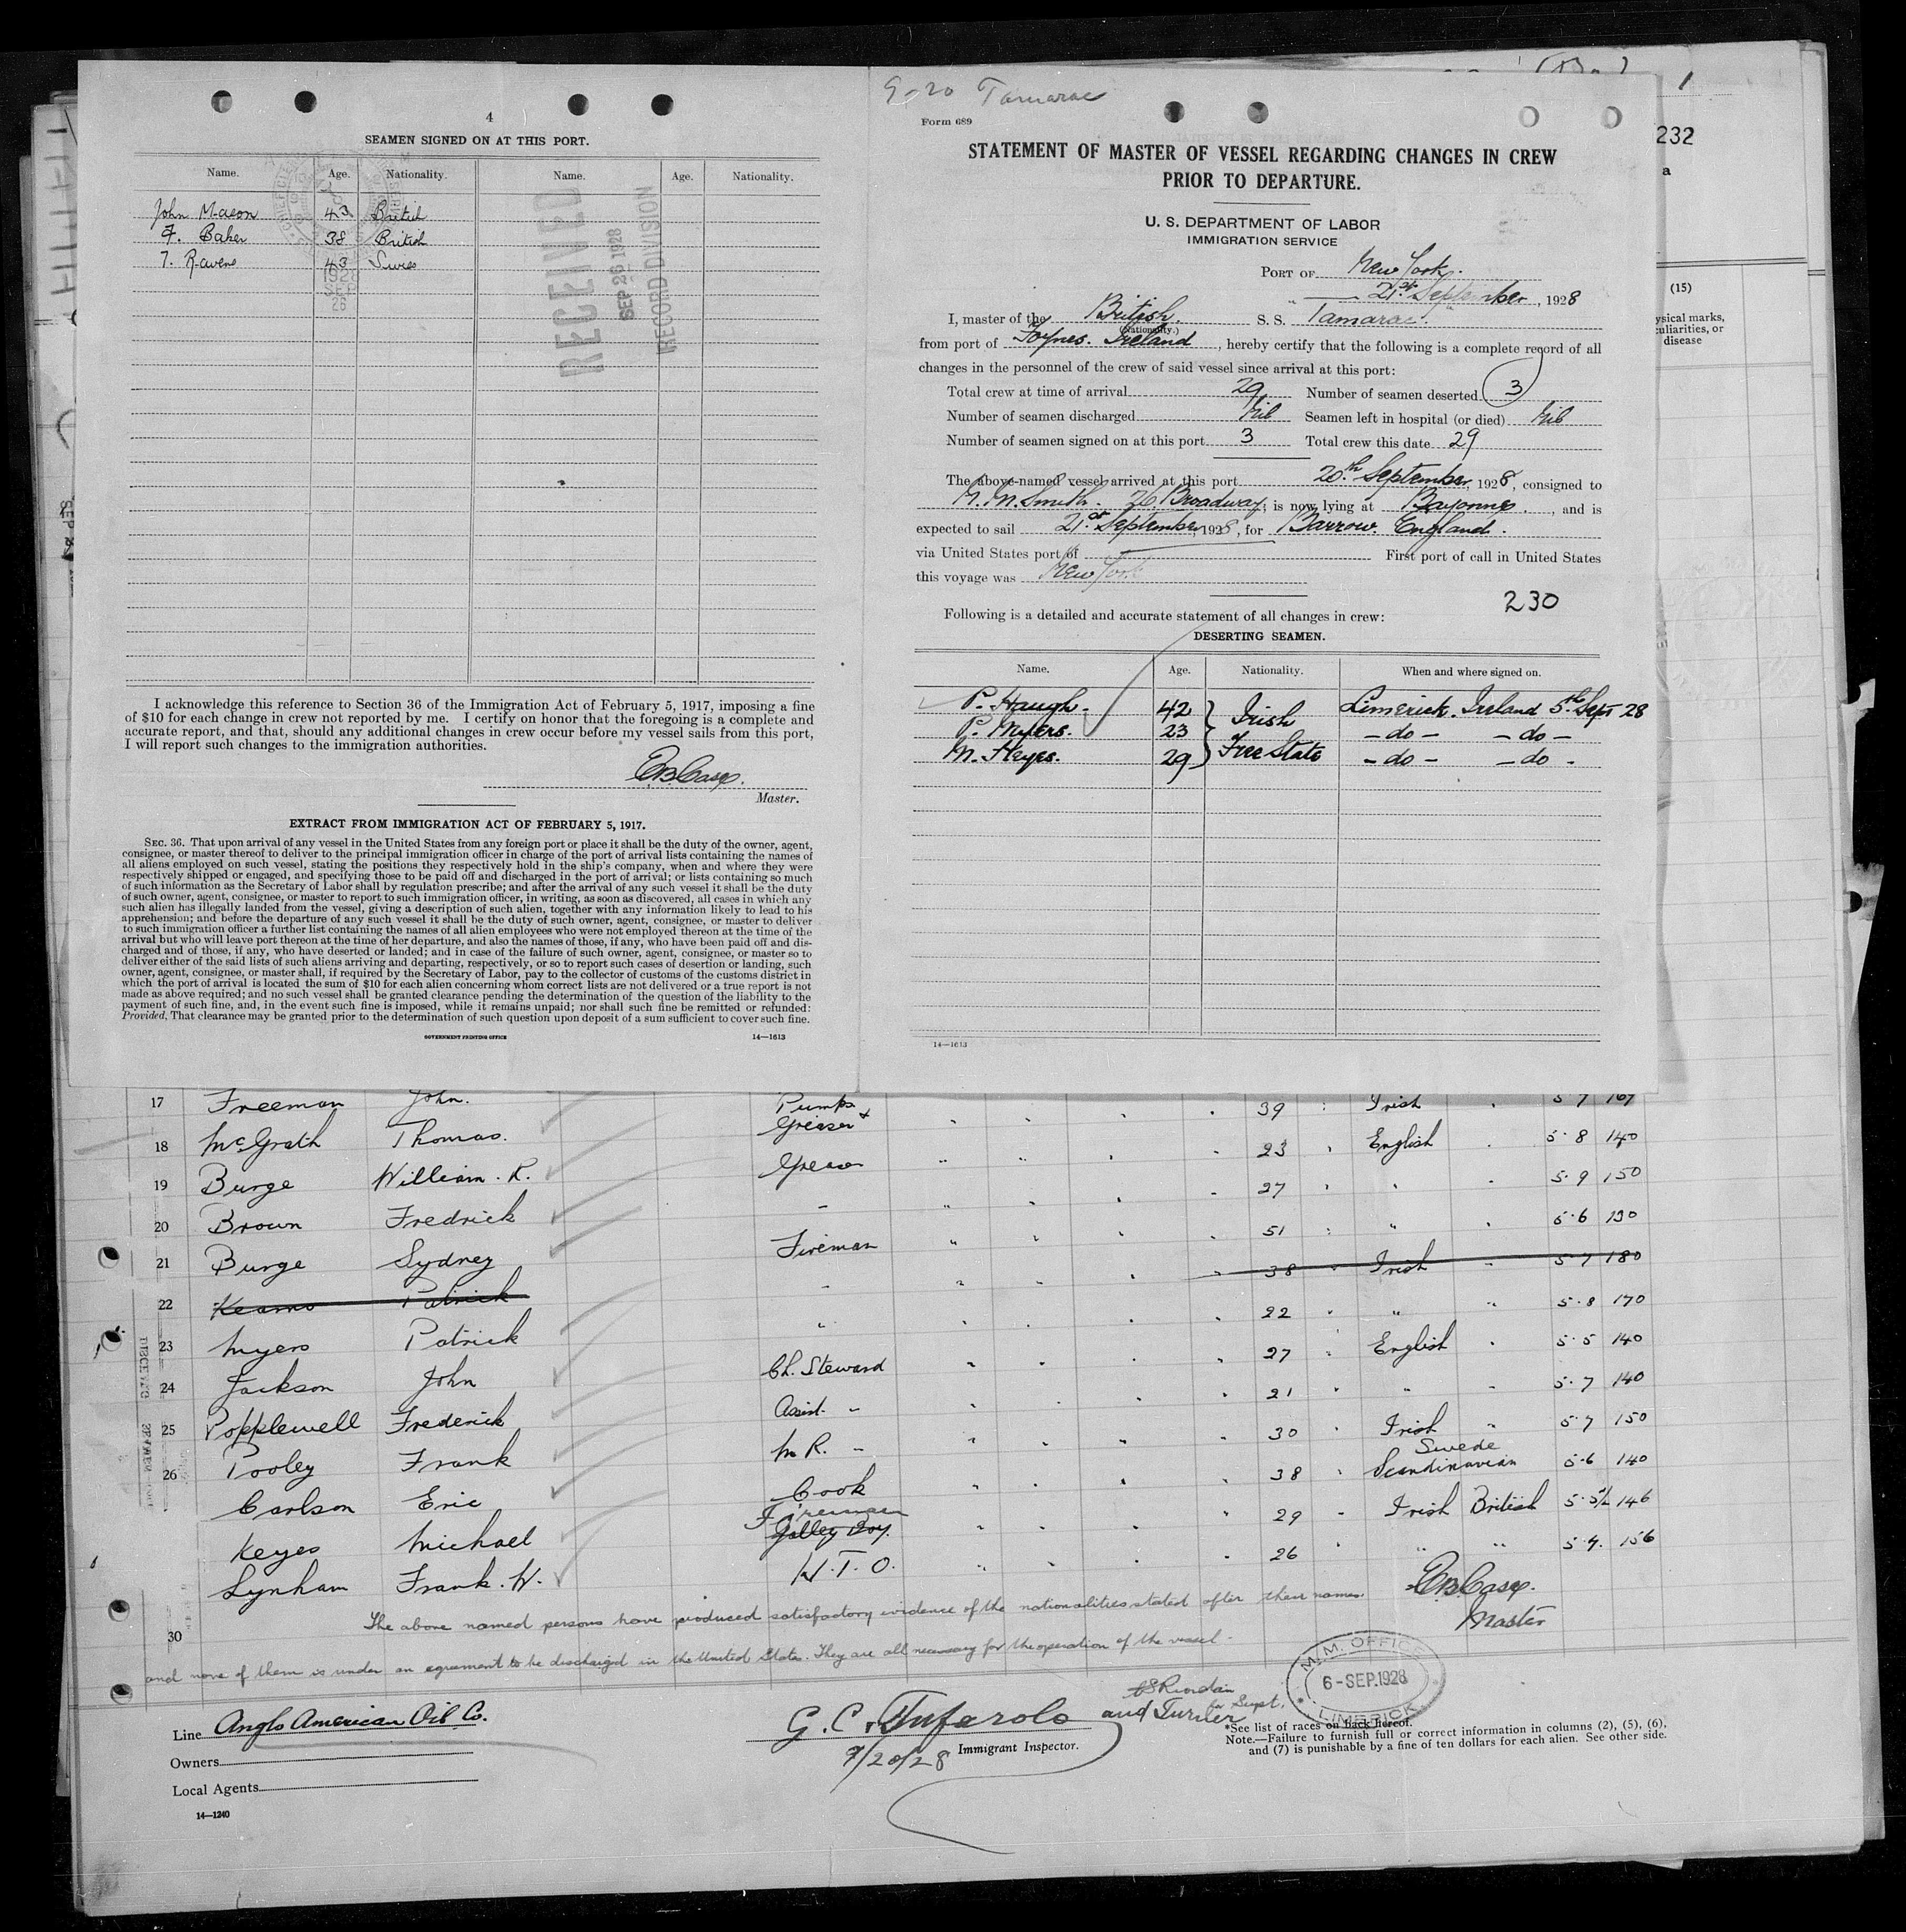 4
SEAMEN SIGNED ON AT THIS PORT.
Name. Age. Nationality. Name. Age. Nationality.
John Mason 43 British
F. Baker 38 British
T. Ravens 43 Swiss
RECEIVED
SEP 26 1928
RECORD DIVISION
I acknowledge this reference to Section 36 of the Immigration Act of February 5, 1917, imposing a fine
of $10 for each change in crew not reported by me. I certify on honor that the foregoing is a complete and
accurate report, and that, should any additional changes in crew occur before my vessel sails from this port,
I will report such changes to the immigration authorities.
E.B. Casey.
Master.
EXTRACT FROM IMMIGRATION ACT OF FEBRUARY 5, 1917.
SEC. 36. That upon arrival of any vessel in the United States from any foreign port or place it shall be the duty of the owner, agent,
consignee, or master thereof to deliver to the principal immigration officer in charge of the port of arrival lists containing the names of
all aliens employed on such vessel, stating the positions they respectively hold in the ship's company, when and where they were
respectively shipped or engaged, and specifying those to be paid off and discharged in the port of arrival; or lists containing so much
of such information as the Secretary of Labor shall by regulation prescribe; and after the arrival of any such vessel it shall be the duty
of such owner, agent, consignee, or master to report to such immigration officer, in writing, as soon as discovered, all cases in which any
such alien has illegally landed from the vessel, giving a description of such alien, together with any information likely to lead to his
apprehension; and before the departure of any such vessel it shall be the duty of such owner, agent, consignee, or master to deliver
to such immigration officer a further list containing the names of all alien employees who were not employed thereon at the time of the
arrival but who will leave port thereon at the time of her departure, and also the names of those, if any, who have been paid off and dis-
charged and of those, if any, who have deserted or landed; and in case of the failure of such owner, agent, consignee, or master so to
deliver either of the said lists of such aliens arriving and departing, respectively, or so to report such cases of desertion or landing, such
owner, agent, consignee, or master shall, if required by the Secretary of Labor, pay to the collector of customs of the customs district in
which the port of arrival is located the sum of $10 for each alien concerning whom correct lists are not delivered or a true report is not
made as above required; and no such vessel shall be granted clearance pending the determination of the question of the liability to the
payment of such fine, and, in the event such fine is imposed, while it remains unpaid; nor shall such fine be remitted or refunded:
Provided, That clearance may be granted prior to the determination of such question upon deposit of a sum sufficient to cover such fine.
GOVERNMENT PRINTING OFFICE 14—1613
9-20 Tamarac
Form 689
STATEMENT OF MASTER OF VESSEL REGARDING CHANGES IN CREW
PRIOR TO DEPARTURE.
U. S. DEPARTMENT OF LABOR
IMMIGRATION SERVICE
PORT OF New York.
21st September, 1928
I, master of the British. S. S. Tamarac.
(Nationality.)
from port of Foynes. Ireland, hereby certify that the following is a complete record of all
changes in the personnel of the crew of said vessel since arrival at this port:
Total crew at time of arrival 29 Number of seamen deserted 3
Number of seamen discharged Nil Seamen left in hospital (or died) Nil
Number of seamen signed on at this port 3 Total crew this date 29
The above-named vessel arrived at this port 20th September, 1928, consigned to
M. M. Smith. 26 Broadway; is now lying at Bayonne., and is
expected to sail 21st September, 1928, for Barrow. England.
via United States port of First port of call in United States
this voyage was New York
230
Following is a detailed and accurate statement of all changes in crew:
DESERTING SEAMEN.
Name. Age. Nationality. When and where signed on.
P. Haugh. 42 Irish Limerick. Ireland 5th Sept 28
P. Myers. 23 – do – – do –
M. Heyes. 29 Free State – do – – do –
14—1613
232
a
(15)
ysical marks,
culiarities, or
disease
17 Freeman John. Pumps 39 Irish 5 7 167
18 McGrath Thomas. Greaser 23 English 5·8 140
19 Burge William. R. Greaser 27 5·9 150
20 Brown Fredrick 51 " 5·6 130
21 Burge Sydney Fireman 38 Irish 5·7 180
22 Kearns Patrick 22 " 5·8 170
23 Myers Patrick 27 English 5·5 140
24 Jackson John Ch. Steward 21 " 5·7 140
25 Popplewell Frederick Assist. 30 Irish 5·7 150
26 Pooley Frank M R. 38 Swede Scandinavian 5·6 140
Carlson Eric Cook 29 Irish British 5·5½ 146
Keyes Michael Fireman Galley Boy. 26 " " 5·4. 156
Lynham Frank. W. W. T. O.
E.B. Casey.
Master
The above named persons have produced satisfactory evidence of the nationalities stated after their names.
30
and none of them is under an agreement to be discharged in the United States. They are all necessary for the operation of the vessel.
M. M. OFFICE
6 - SEP. 1928
LIMERICK
Line Anglo American Oil Co.
Owners
Local Agents
14—1240
G. C. Tufarolo
and Turner
for Supt.
9/20/28 Immigrant Inspector.
*See list of races on back hereof.
Note.—Failure to furnish full or correct information in columns (2), (5), (6),
and (7) is punishable by a fine of ten dollars for each alien. See other side.